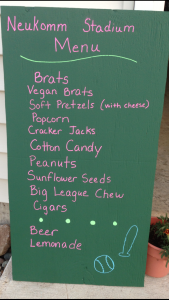 Neukomm Stadium
Menu
Brats
Vegan Brats
Soft Pretzels (with cheese)
Popcorn
Cracker Jacks
Cotton Candy
Peanuts
Sunflower Seeds
Big League Chew
Cigars
Beer
Lemonade